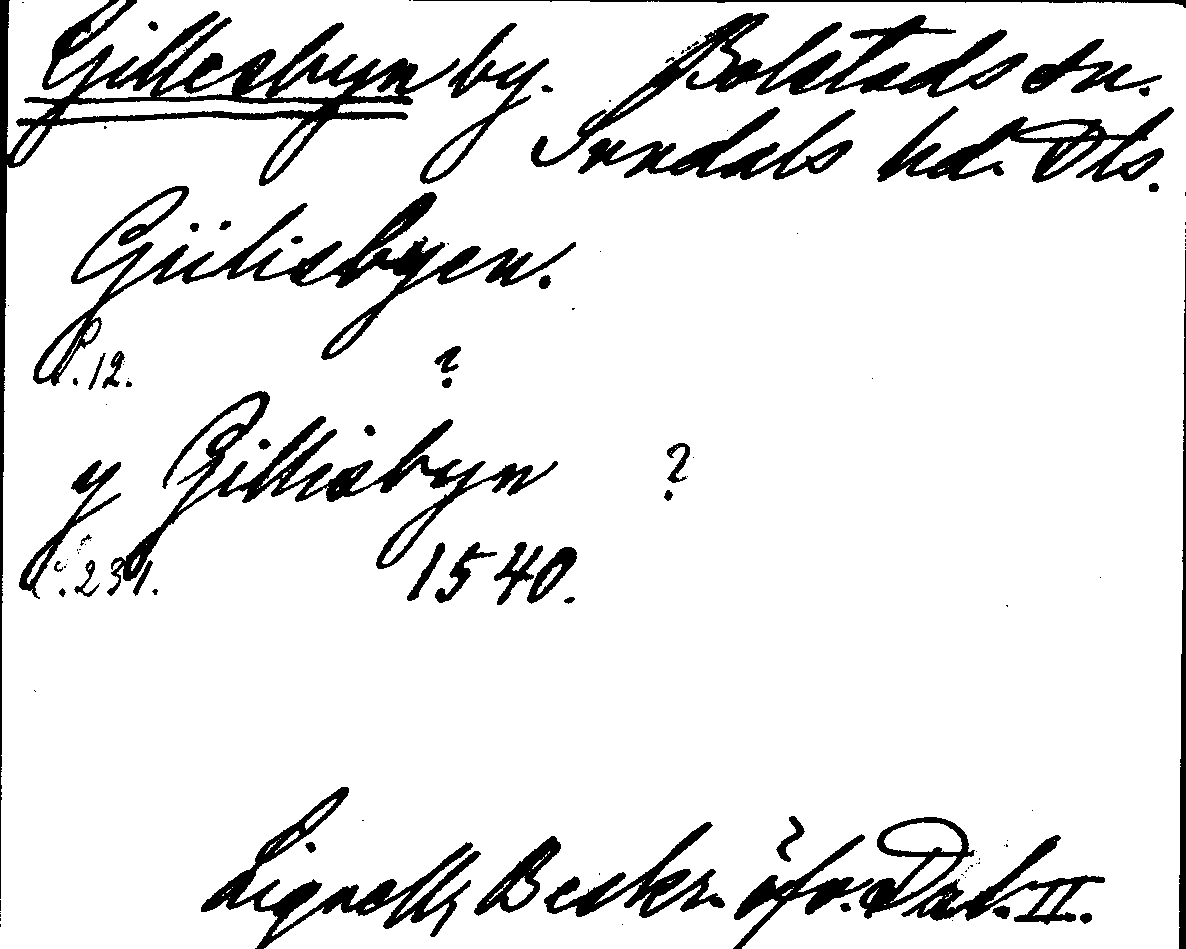 Gillesbyn by. Bolstads sn.
Sundals hd. Dls.
Giilisbyen.
S. 12. ?
y Gillisbyn ?
S. 231. 1540.
Lignell, Beskr. öfv. Dal. II.